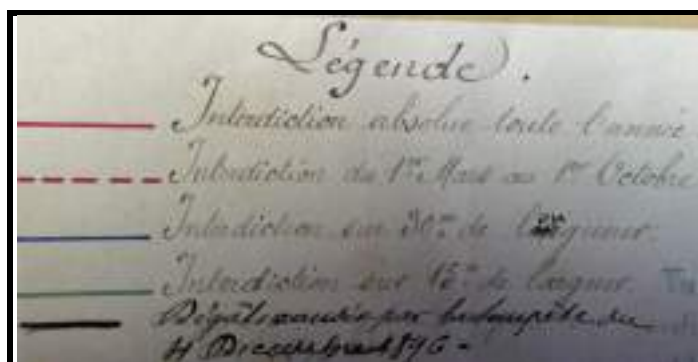 Légende.
Interdiction absolue toute l'année
Interdiction du 1er Mars au 1er Octobre
Interdiction sur 30m de largueur.
Interdiction sur 15m de largueur.
Dégâts causés par la tempête du
4 Décembre 1896-